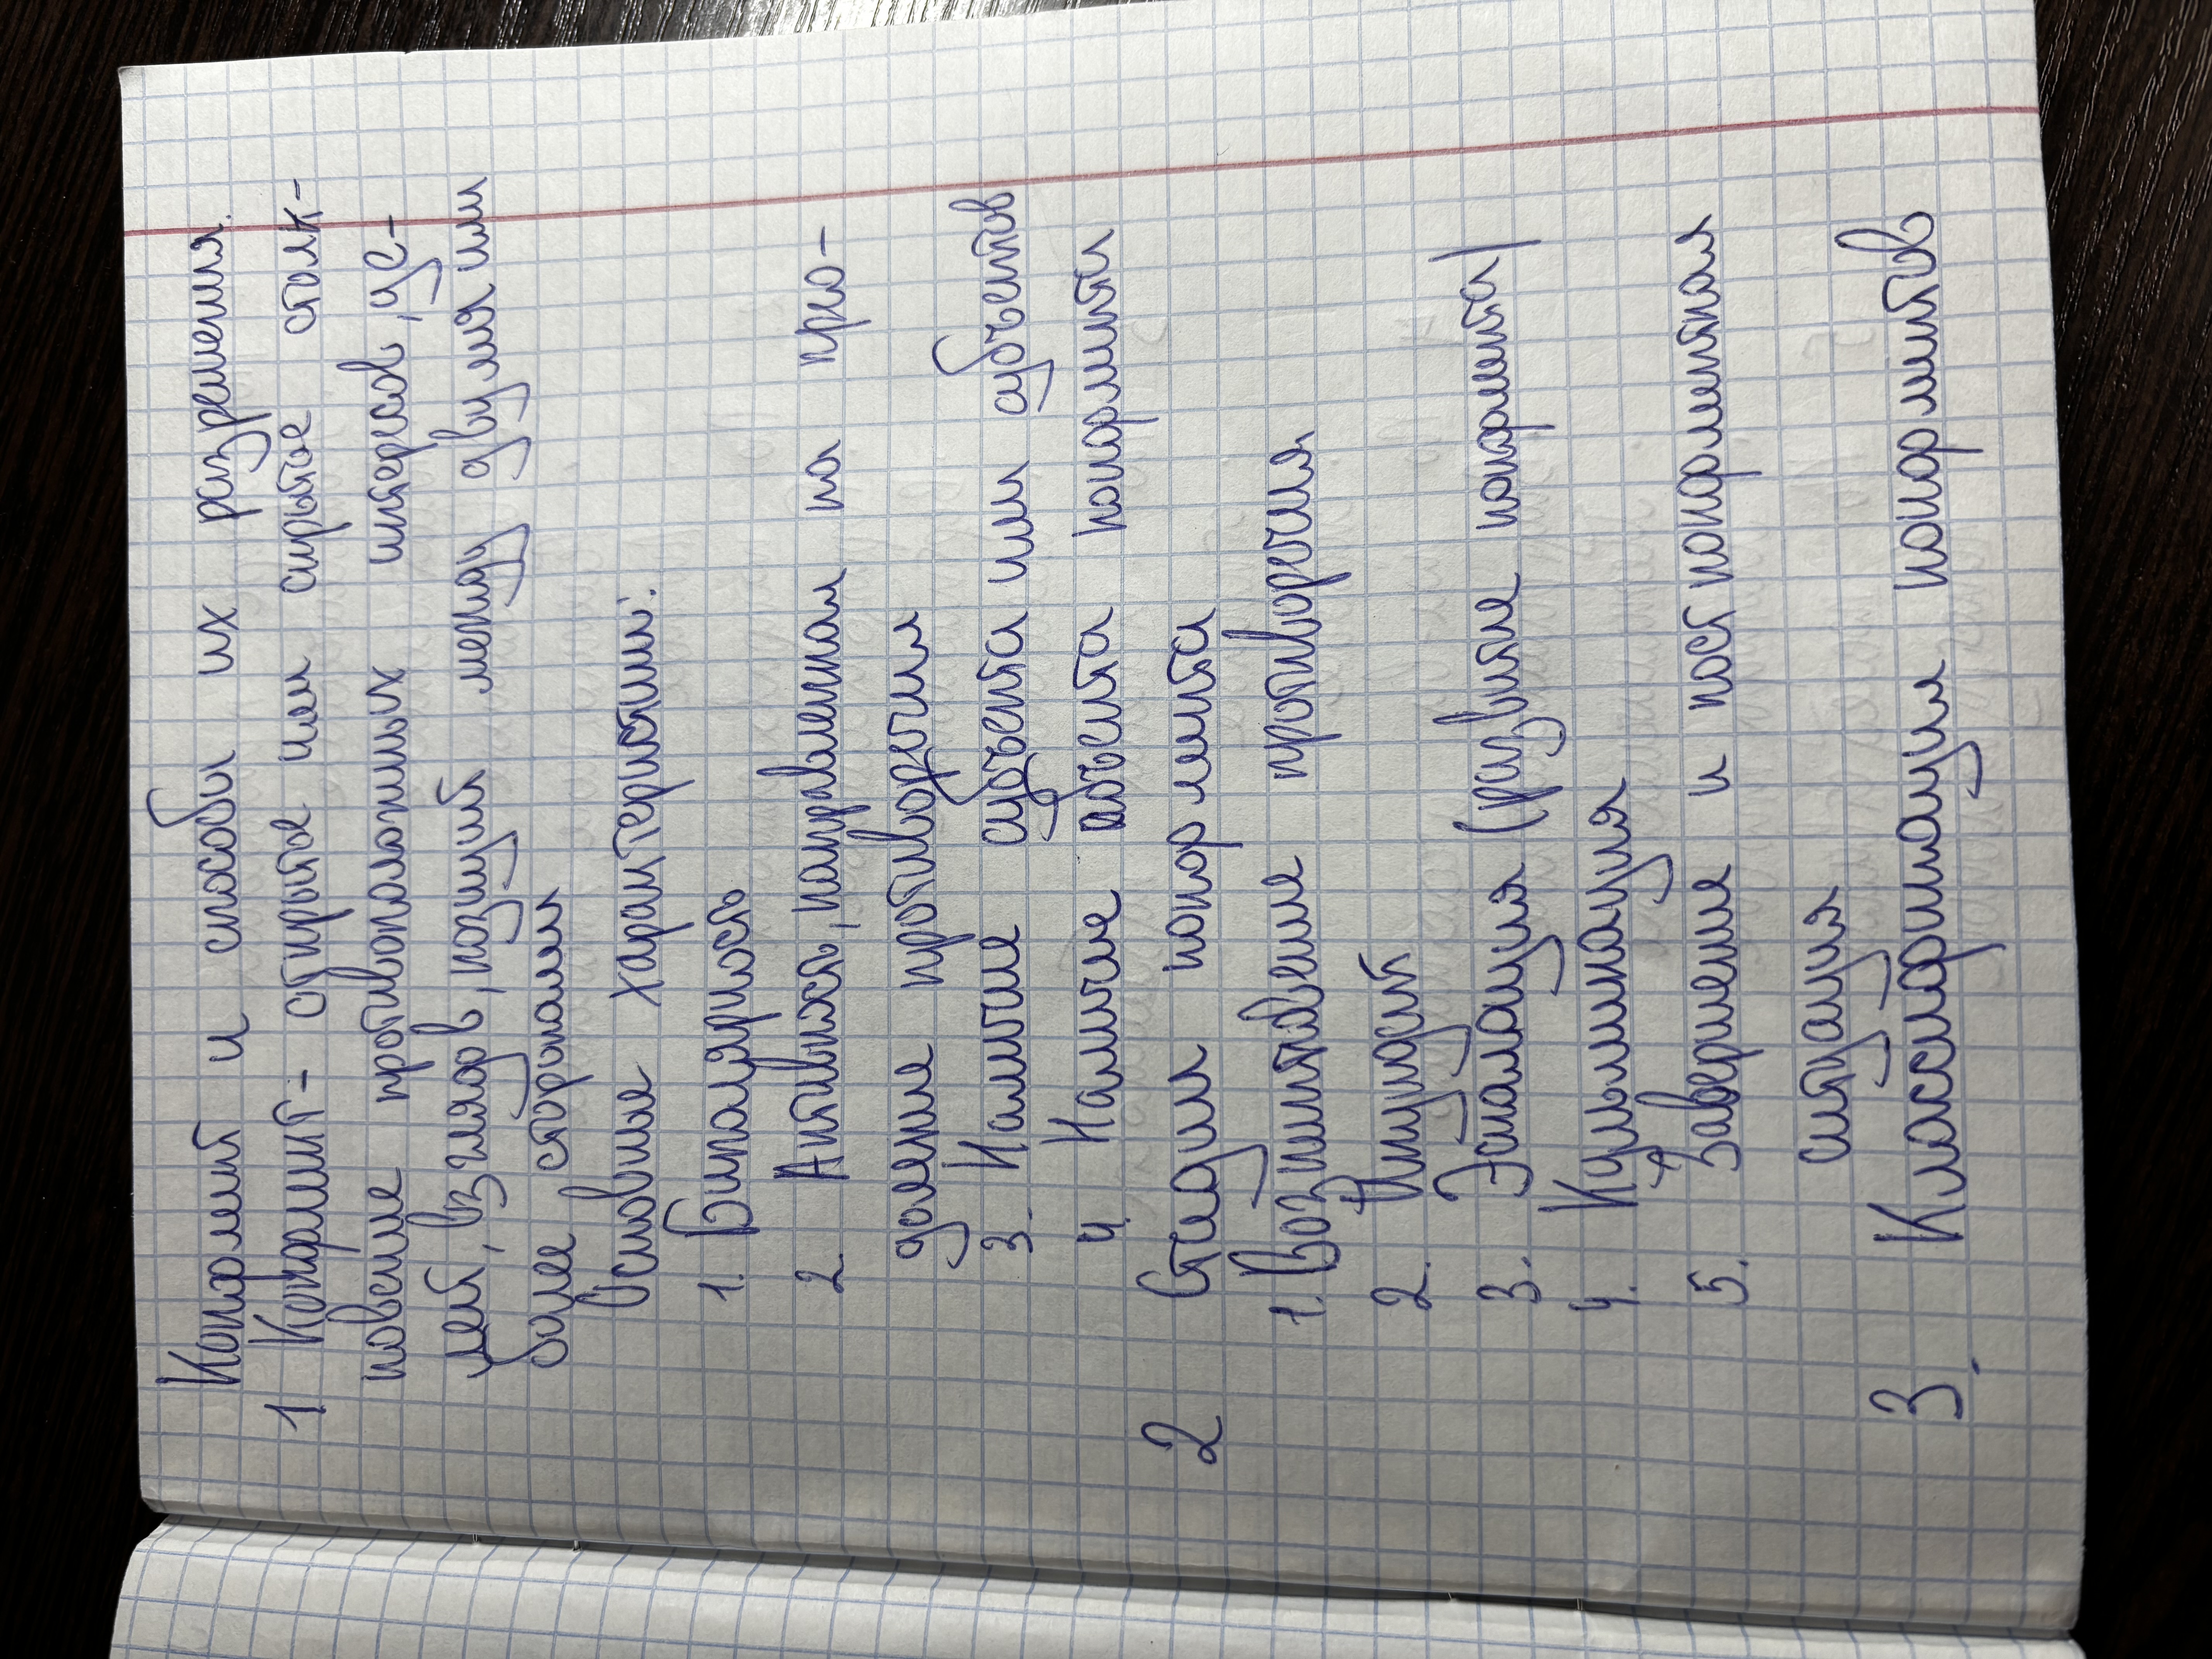 Конфликт и способы их разрешения.
1 Конфликт - открытое или скрытое столк-
новение противоположных интересов, це-
лей, взглядов, позиций между двумя или
более сторонами
Основные характеристики:
1. Биполярность
2. Активность, направленная на про-
деление противоречия
3. Наличие субъекта или субъектов
4. Наличие объекта конфликта
2 Стадии конфликта
1. Возникновение противоречия
2. Инцидент
3. Эскалация (развитие конфликта)
4. Кульминация
5. Завершение и постконфликтная
ситуация
3. Классификация конфликтов